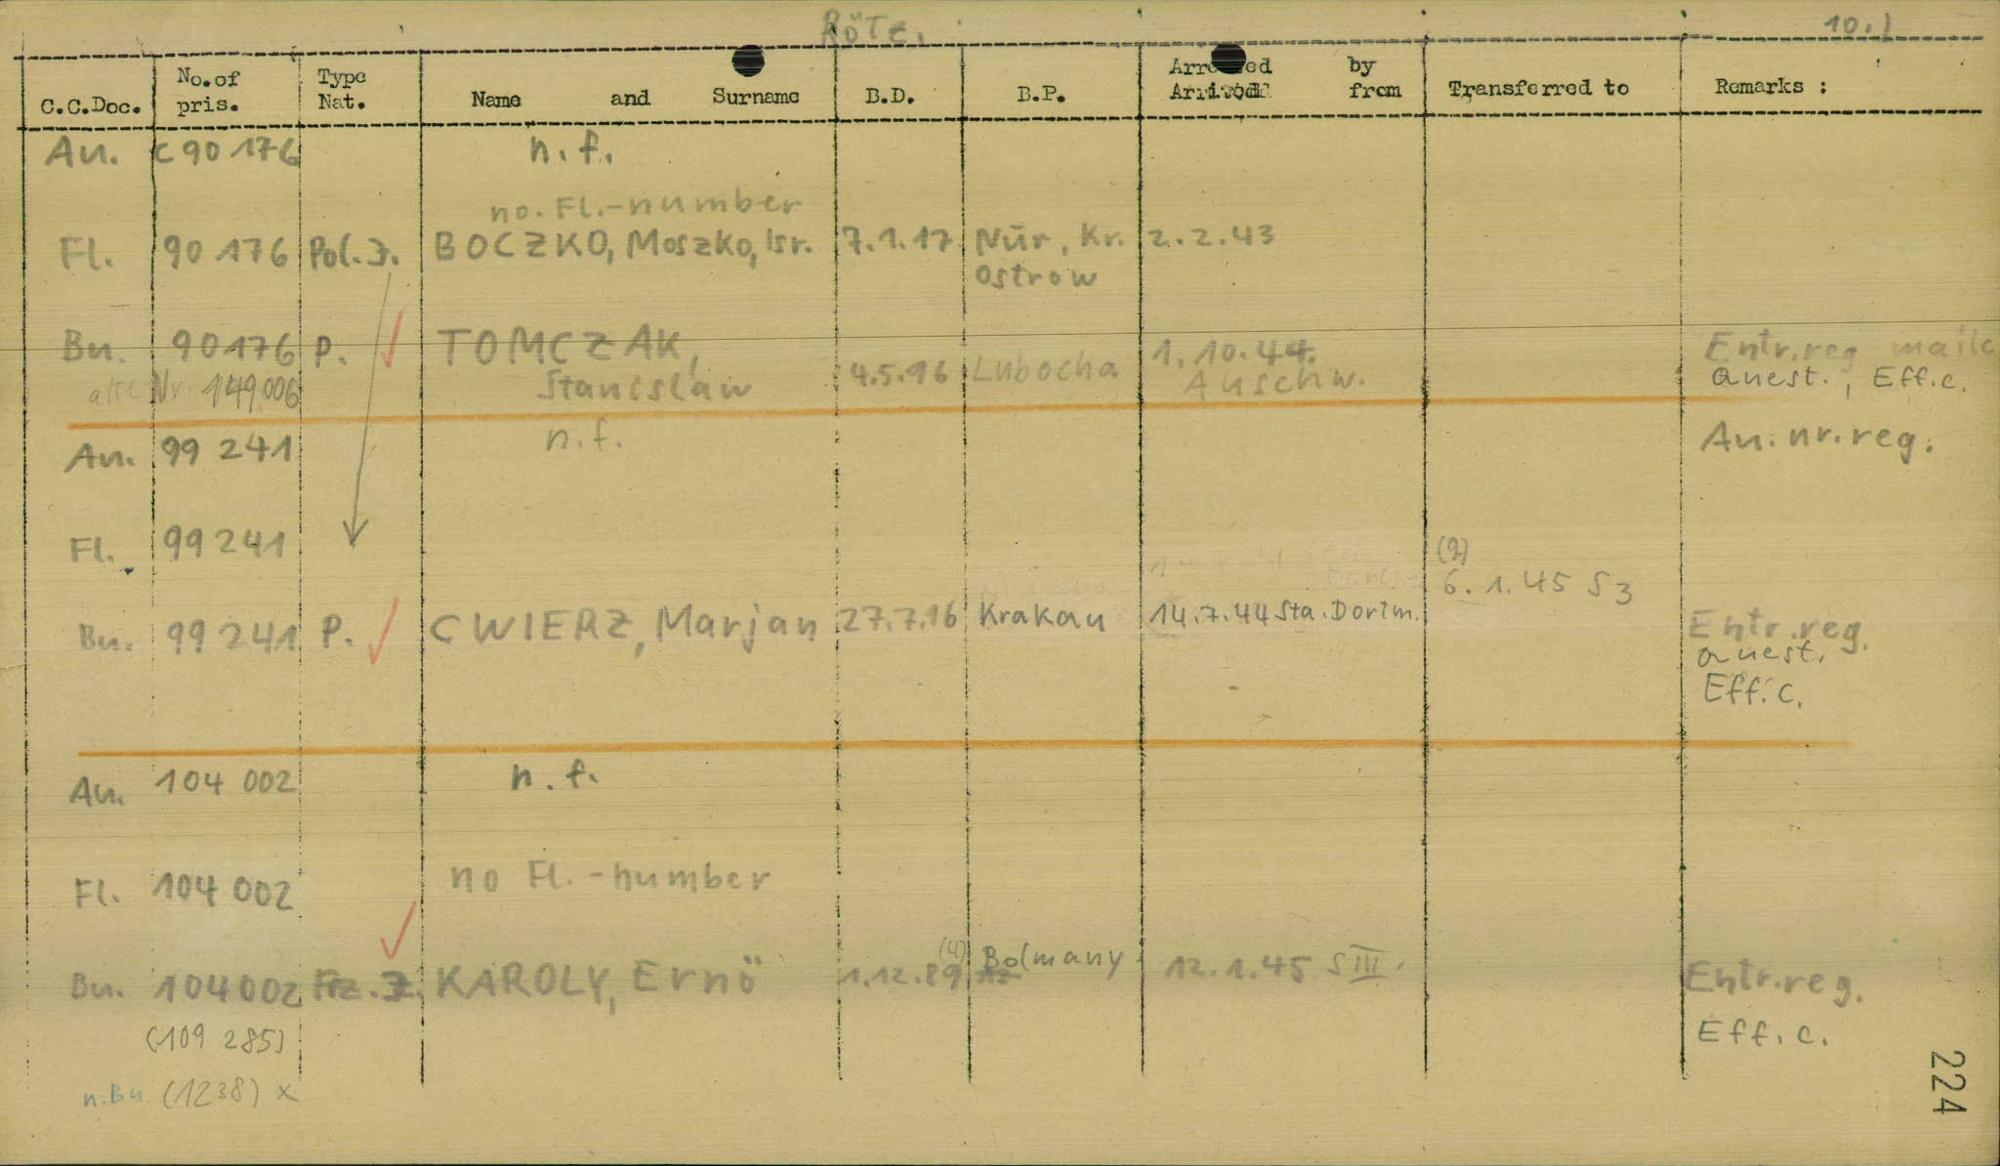 Röte.
10.1
C.C.Doc. No.of pris. Type Nat. Name and Surname B.D. B.P. by from Transferred to Remarks :
An. c 90 176 n.f.
no. Fl.-number
Fl. 90 176 Pol.J. BOCZKO, Moszko, Isr. 7.1.17 Nur, Kr. 2.2.43
Ostrow
Bu. 90176 P. TOMCZAK, 1.10.44. Entr.reg
alte Nr. 149006 Stanislaw 4.5.96 Lubocha Auschw. Quest., Eff.c.
An. 99 241 n.f. An. nr. reg.
Fl. 99 241 (9)
6.1.45 S3
Bu. 99 241 P. CWIERZ, Marjan 27.7.16 Krakau 14.7.44 Sta. Dortm. Entr.reg.
Quest.
Eff.c.
An. 104 002 n.f.
Fl. 104 002 no Fl.-number
Bu. 104002 Frz.J. KAROLY, Ernö 1.12.89 (4) Bolmany 12.1.45 SIII. Entr.reg.
(109 285) Eff.c.
n.Bu (1238) x
224